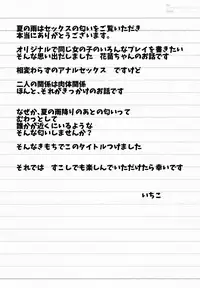 夏の雨はセックスの匂いをご覧いただき
本当にありがとうございます。
オリジナルで同じ女の子のいろんなプレイを書きたい
そんな思い出だしました 花菖ちゃんのお話です
相変わらずのアナルセックス ですけど
二人の関係は肉体関係
ほんと、それがきっかけのお話です
なぜか、夏の雨降りのあとの匂いって
むわっとして
誰かが近くにいるような
そんな匂いしませんか？
そんなきもちでこのタイトルつけました
それでは すこしでも楽しんでいただけたら幸いです
いちこ